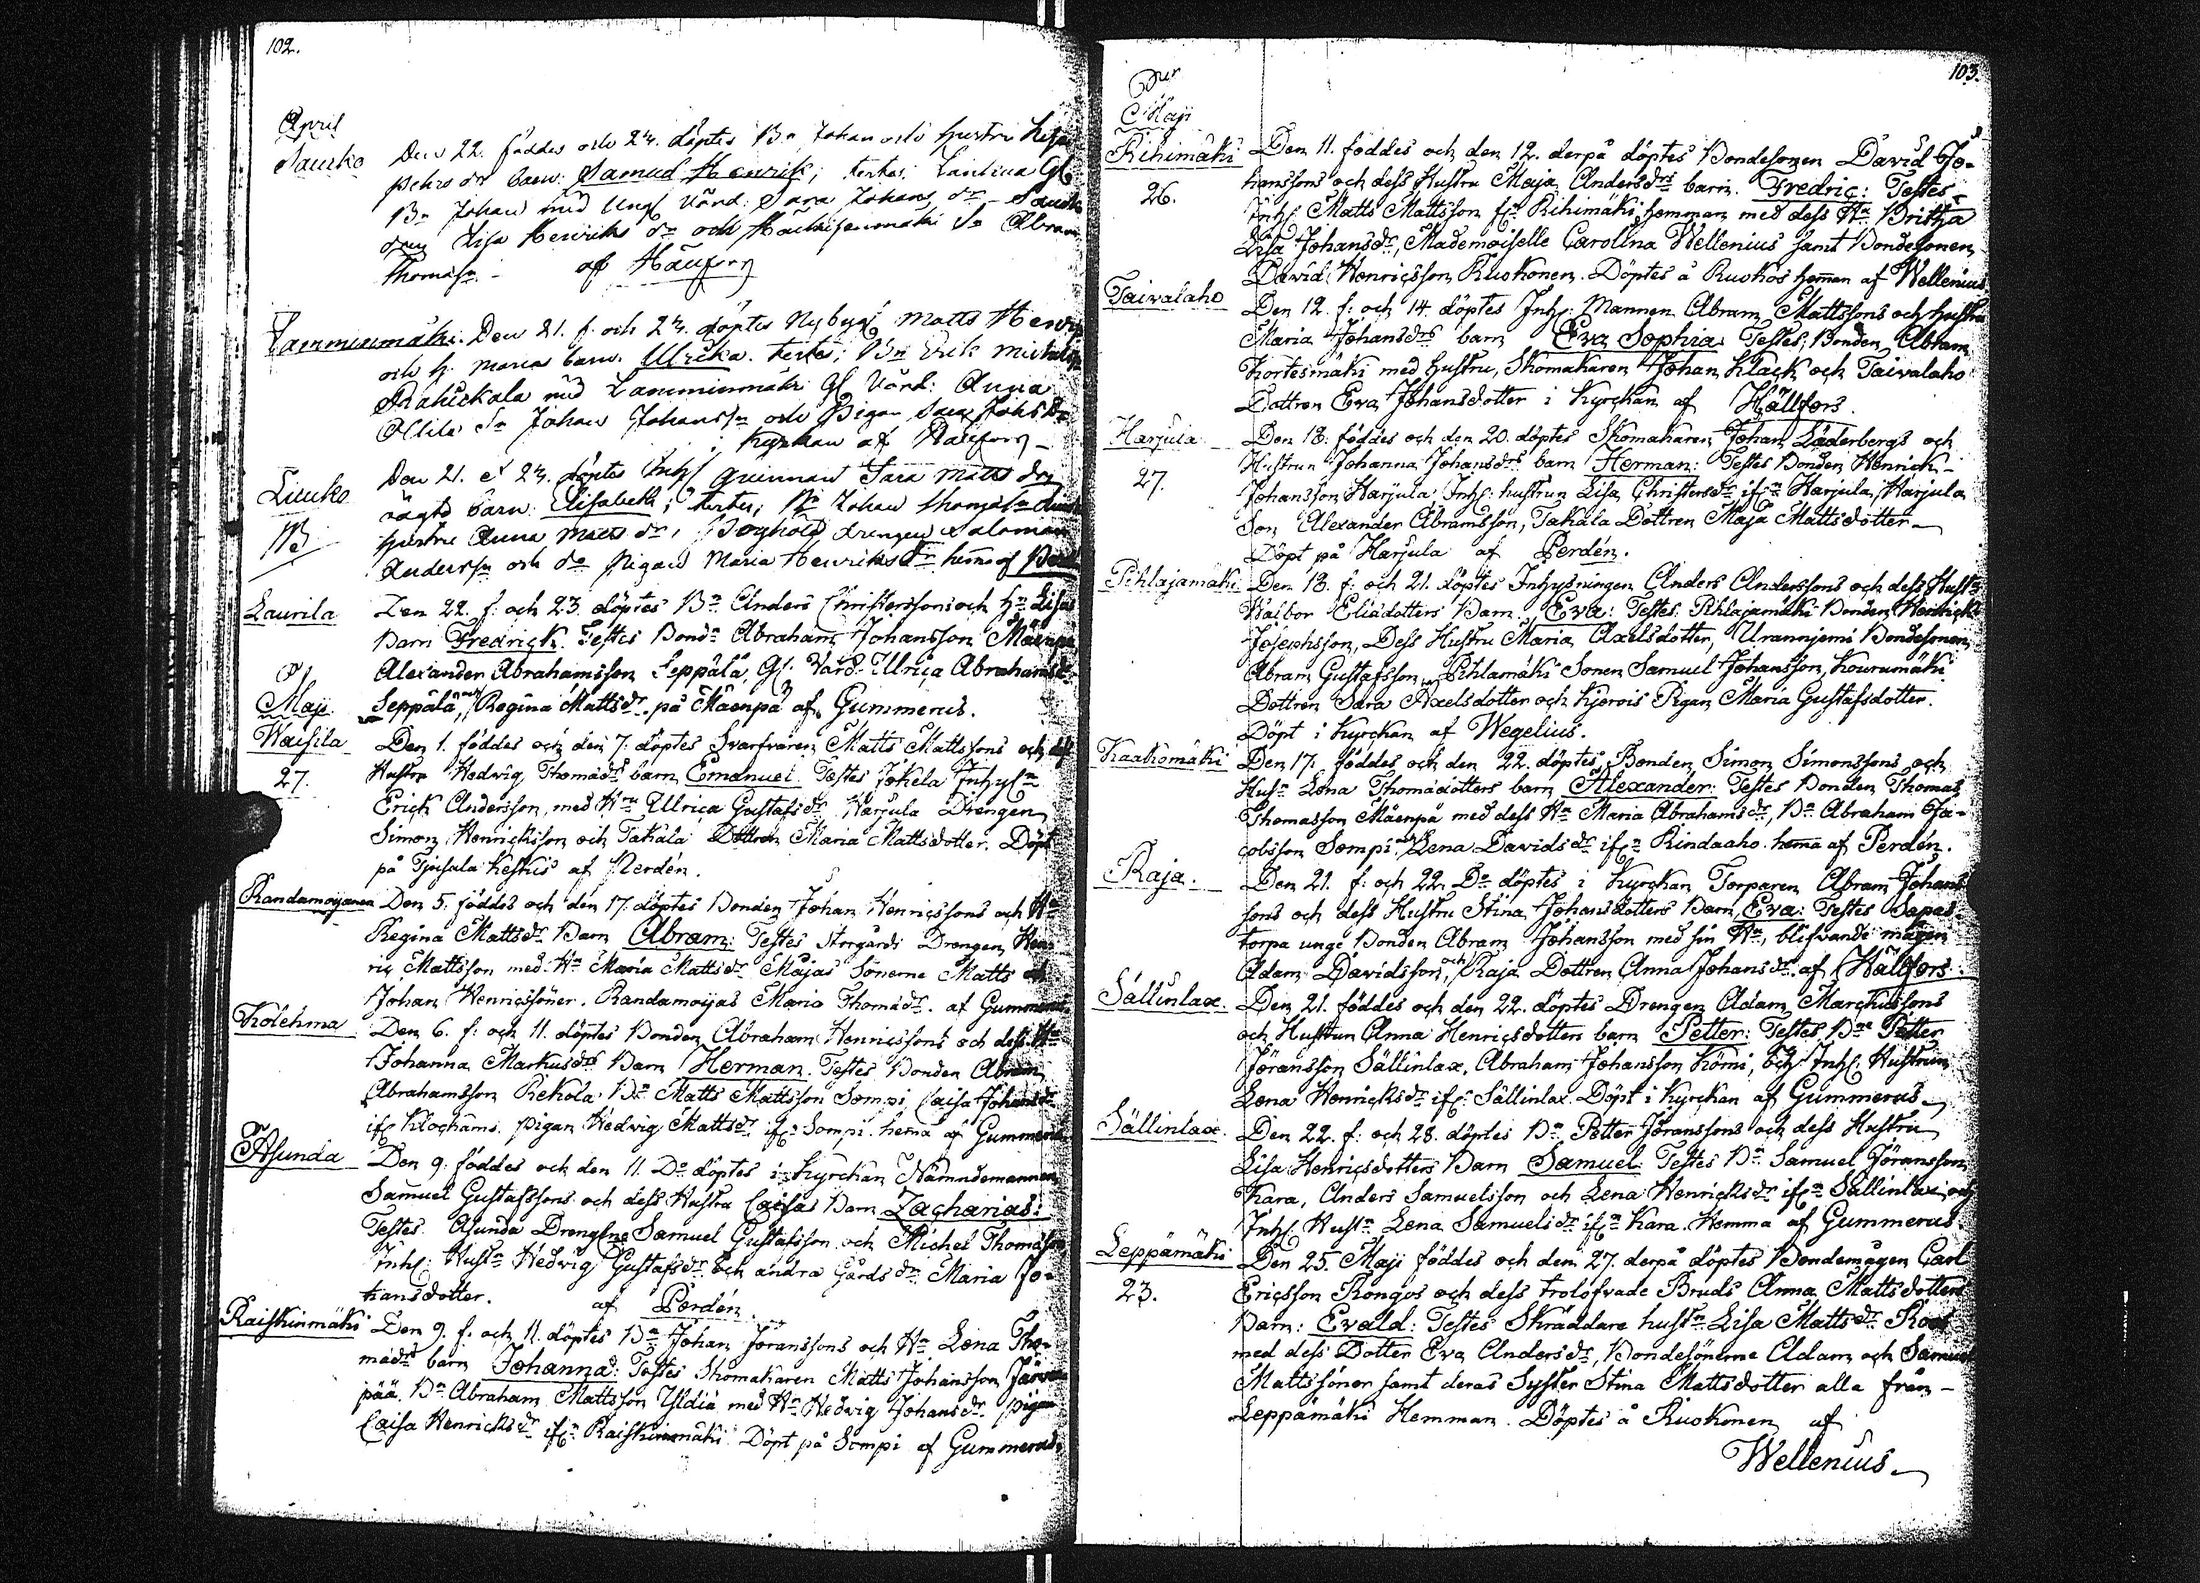 102.
April
Sauko Den 22. föddes och 24. döptes Bn Johan och hustru Lisa
Petersdr barn: Samuel Henrik; testes: Gl
Bn Johan med Ungl Värd: Sara Johans dr
Lisa Henriks dr och So Abram
Thomass. af Hällfors
Lamminmäki. Den 21. f. och 24. döptes Nybygg Matts Henr
och h. Maria barn. Ulrika. testes; Bn Erik Mickelss
Rahickala med Lamminmäki Gl Värd: Anna
Ollila Sn Johan Johanssn och Pigan Johsdr
i Kyrkan af Hällfors
Liuko Den 21. et 24. döptes Inhs qvinnans Sara Matts drs
oägta barn: Elisabeth; testes; Bn Johan Thomass
NB hustru Anna Matts dr, drengen Salomon
Anderssn och do Pigan Maria Henriks dr hema af
Laurila Den 22. f. och 23. döptes Bn Anders Christerssons och Hn Lisas
Barn Fredrick. Testes Bondn Abraham Johansson Mäenpä
Alexander Abrahamsson Seppälä, Gl. Värd. Ulrica Abrahamsdr
Seppälä, och Regina Mattsdr på Mäenpä af Gummerus.
Maji
Waisila Den 1. föddes och den 7. döptes Svarfvaren Matts Mattssons och dess
27. Hustru Hedvig Thomædrs barn Emanuel. Testes Jokela Inhysn
Erick Andersson, med Hn Ulrica Gustafsdr Harjula Drengen
Simon Henricksson och Takala Dottren Maria Mattsdotter. Döpt
på Tjusala Keskis af Perdén.
Randamoijanen Den 5. föddes och den 17. döptes Bonden Johan Henricssons och Hn
Regina Mattsdr Barn Abram: Testes Storgårds Drengen Hen-
ric Mattsson med Hn Maria Mattsdr Majas Sönerne Matts och
Johan Henricssöner. Randamoijas Maria Thomædr. af Gummerus.
Kolehma Den 6. f: och 11. döptes Bonden Abraham Henricssons och dess Hn
Johanna Markusdrs Barn Herman. Testes Bonden Abram
Abrahamsson Rekola. Bn Matts Mattsson Sompi, Caisa Johansdr
ifn Klockams. pigan Hedvig Mattsdr ifn Sompi. hema af Gummerus
Asunda Den 9. föddes och den 11. Do döptes i Kyrckan Nämndemannen
Samuel Gustafssons och dess Hustru Caisas Barn Zacharias:
Testes. Asunda Drengerne Samuel Gustafsson och Michel Thomasson
Inhs: Hustn Hedvig Gustafsdr och andra Gårds dn Maria Jo-
hansdotter. af Perdén.
Raiskinmäki Den 9. f. och 11. döptes Bn Johan Joranssons och Hn Lena Tho-
mædrs barn Johanna: Testes Skomakaren Matts Johansson Järven
pää. Bn Abraham Mattsson Yldiä med Hn Hedvig Johansdr. pigan
Caisa Henricksdr ifn Raiskinmäki. Döpt på Sompi af Gummerus.
103.
Maji
Rihimäki Den 11. föddes och den 12. derpå döptes Bondesonen David Jo-
hanssons och dess Hustru Maja Andersdrs barn. Fredric: Testes
26. Inhs: Matts Mattsson fn Rihimäki hemman med dess Hn Britha
Lisa Johansdr, Mademoiselle Carolina Wellenius samt Bondesonen
David Henricsson Ruokonen. Döptes å Ruokos heman af Wellenius
Taivalaho Den 12. f: och 14. döptes Inhs: Mannen Abram Mattssons och hustru
Maria Johansdrs barn Eva Sophia Testes; Bonden Abram
Kortesmäki med hustru, Skomakaren Johan Klack och Taivalaho
Dottren Eva Johansdotter i Kyrckan af Hällfors.
Harjula Den 18. föddes och den 20. döptes Skomakaren Johan Läderbergs och
Hustrun Johanna Johansdrs barn Herman: Testes Bonden Henrick
27. Johansson Harjula, Inhs: hustrun Lisa Christersdr ifn Harjula, Harjula
Son Alexander Abramsson, Takala Dottren Maja Mattsdotter
Döpt på Harjula af Perdén.
Pihlajamäki Den 18. f: och 21. döptes Inhysningen Anders Anderssons och dess Hustru
Walbor Eliædotters Barn Eva: Testes. Pihlajamäki Bonden Henrick
Josephsson, Dess Hustru Maria Axelsdotter, Urannjemi Bondesonen
Abram Gustafsson, Pihlamäki Sonen Samuel Johansson, Kouramäki
Dottren Sara Axelsdotter och Kjerois Pigan Maria Gustafsdotter.
Döpt i Kyrckan af Wegelius.
Kaakomäki Den 17. föddes och den 22. döptes Bonden Simon Simonssons och
Husn Lena Thomædotters barn Alexander: Testes Bonden Thomas
Thomasson Mäenpä med dess Hn Maria Abrahamsdr, Bn Abraham Ja-
cobsson Sompi. och Lena Davidsdr ifn Rindaaho. hema af Perdén.
Raja. Den 21. f: och 22. Do döptes i Kyrckan Torparen Abram Johans
sons och dess Hustru Stina Johansdotters Barn Eva: Testes Sapas
torpa unge Bonden Abram Johansson med sin Hn, blifvande mågen
Adam Davidsson, och Raja Dottren Anna Johansdr. af Hällfors.
Sällinlax. Den 21. föddes och den 22. döptes Drengen Adam Marckussons
och Hustrun Anna Henricsdotters barn Petter: Testes, Bne Petter
Jöransson Sällinlax, Abraham Johansson Körni, och Inhs: Hustrun
Lena Henricksdr ifn Sällinlax. Döpt i Kyrckan af Gummerus
Sällinlax. Den 22. f: och 28. döptes Bn Petter Jöranssons och dess Hustru
Lisa Henricsdotters Barn Samuel. Testes Bn Samuel Jöransson
Kara, Anders Samuelsson och Lena Henricksdr ifn Sällinlax och
Inhs. Hustn Lena Samuelsdr ifn Kara. Hemma af Gummerus.
Leppämäki Den 25. Maji föddes och den 27. derpå döptes Bondemågen Carl
23. Ericsson Rongos och dess trolofvade Bruds Anna Mattsdotters
Barn: Evald: Testes Skräddare hustn Lisa Mattsdr
med dess Dotter Eva Andersdr, Bondesönerne Adam och Samuel
Mattssöner samt deras Syster Stina Mattsdotter alla från
Leppämäki Hemman. Döptes å Ruokonen af
Wellenius